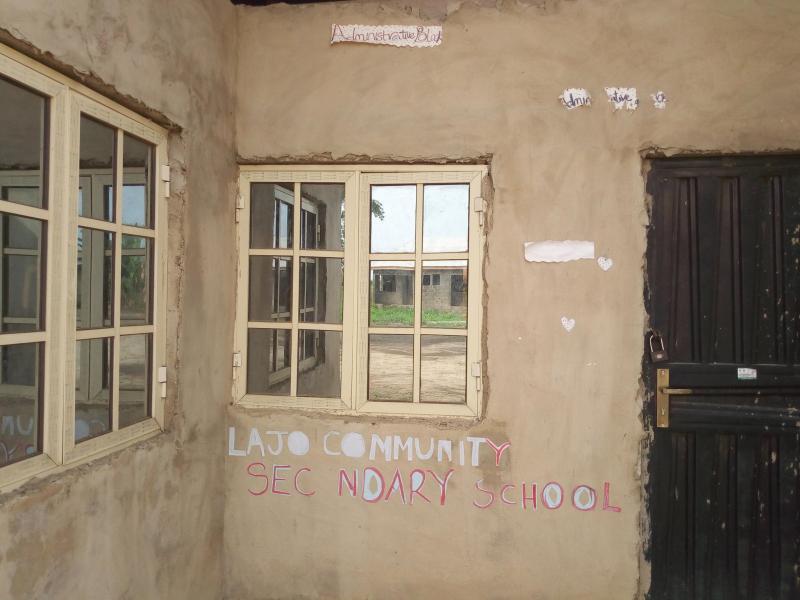 Administrative Block
Admin ative
LAJO COMMUNITY
SEC NDARY SCHOOL